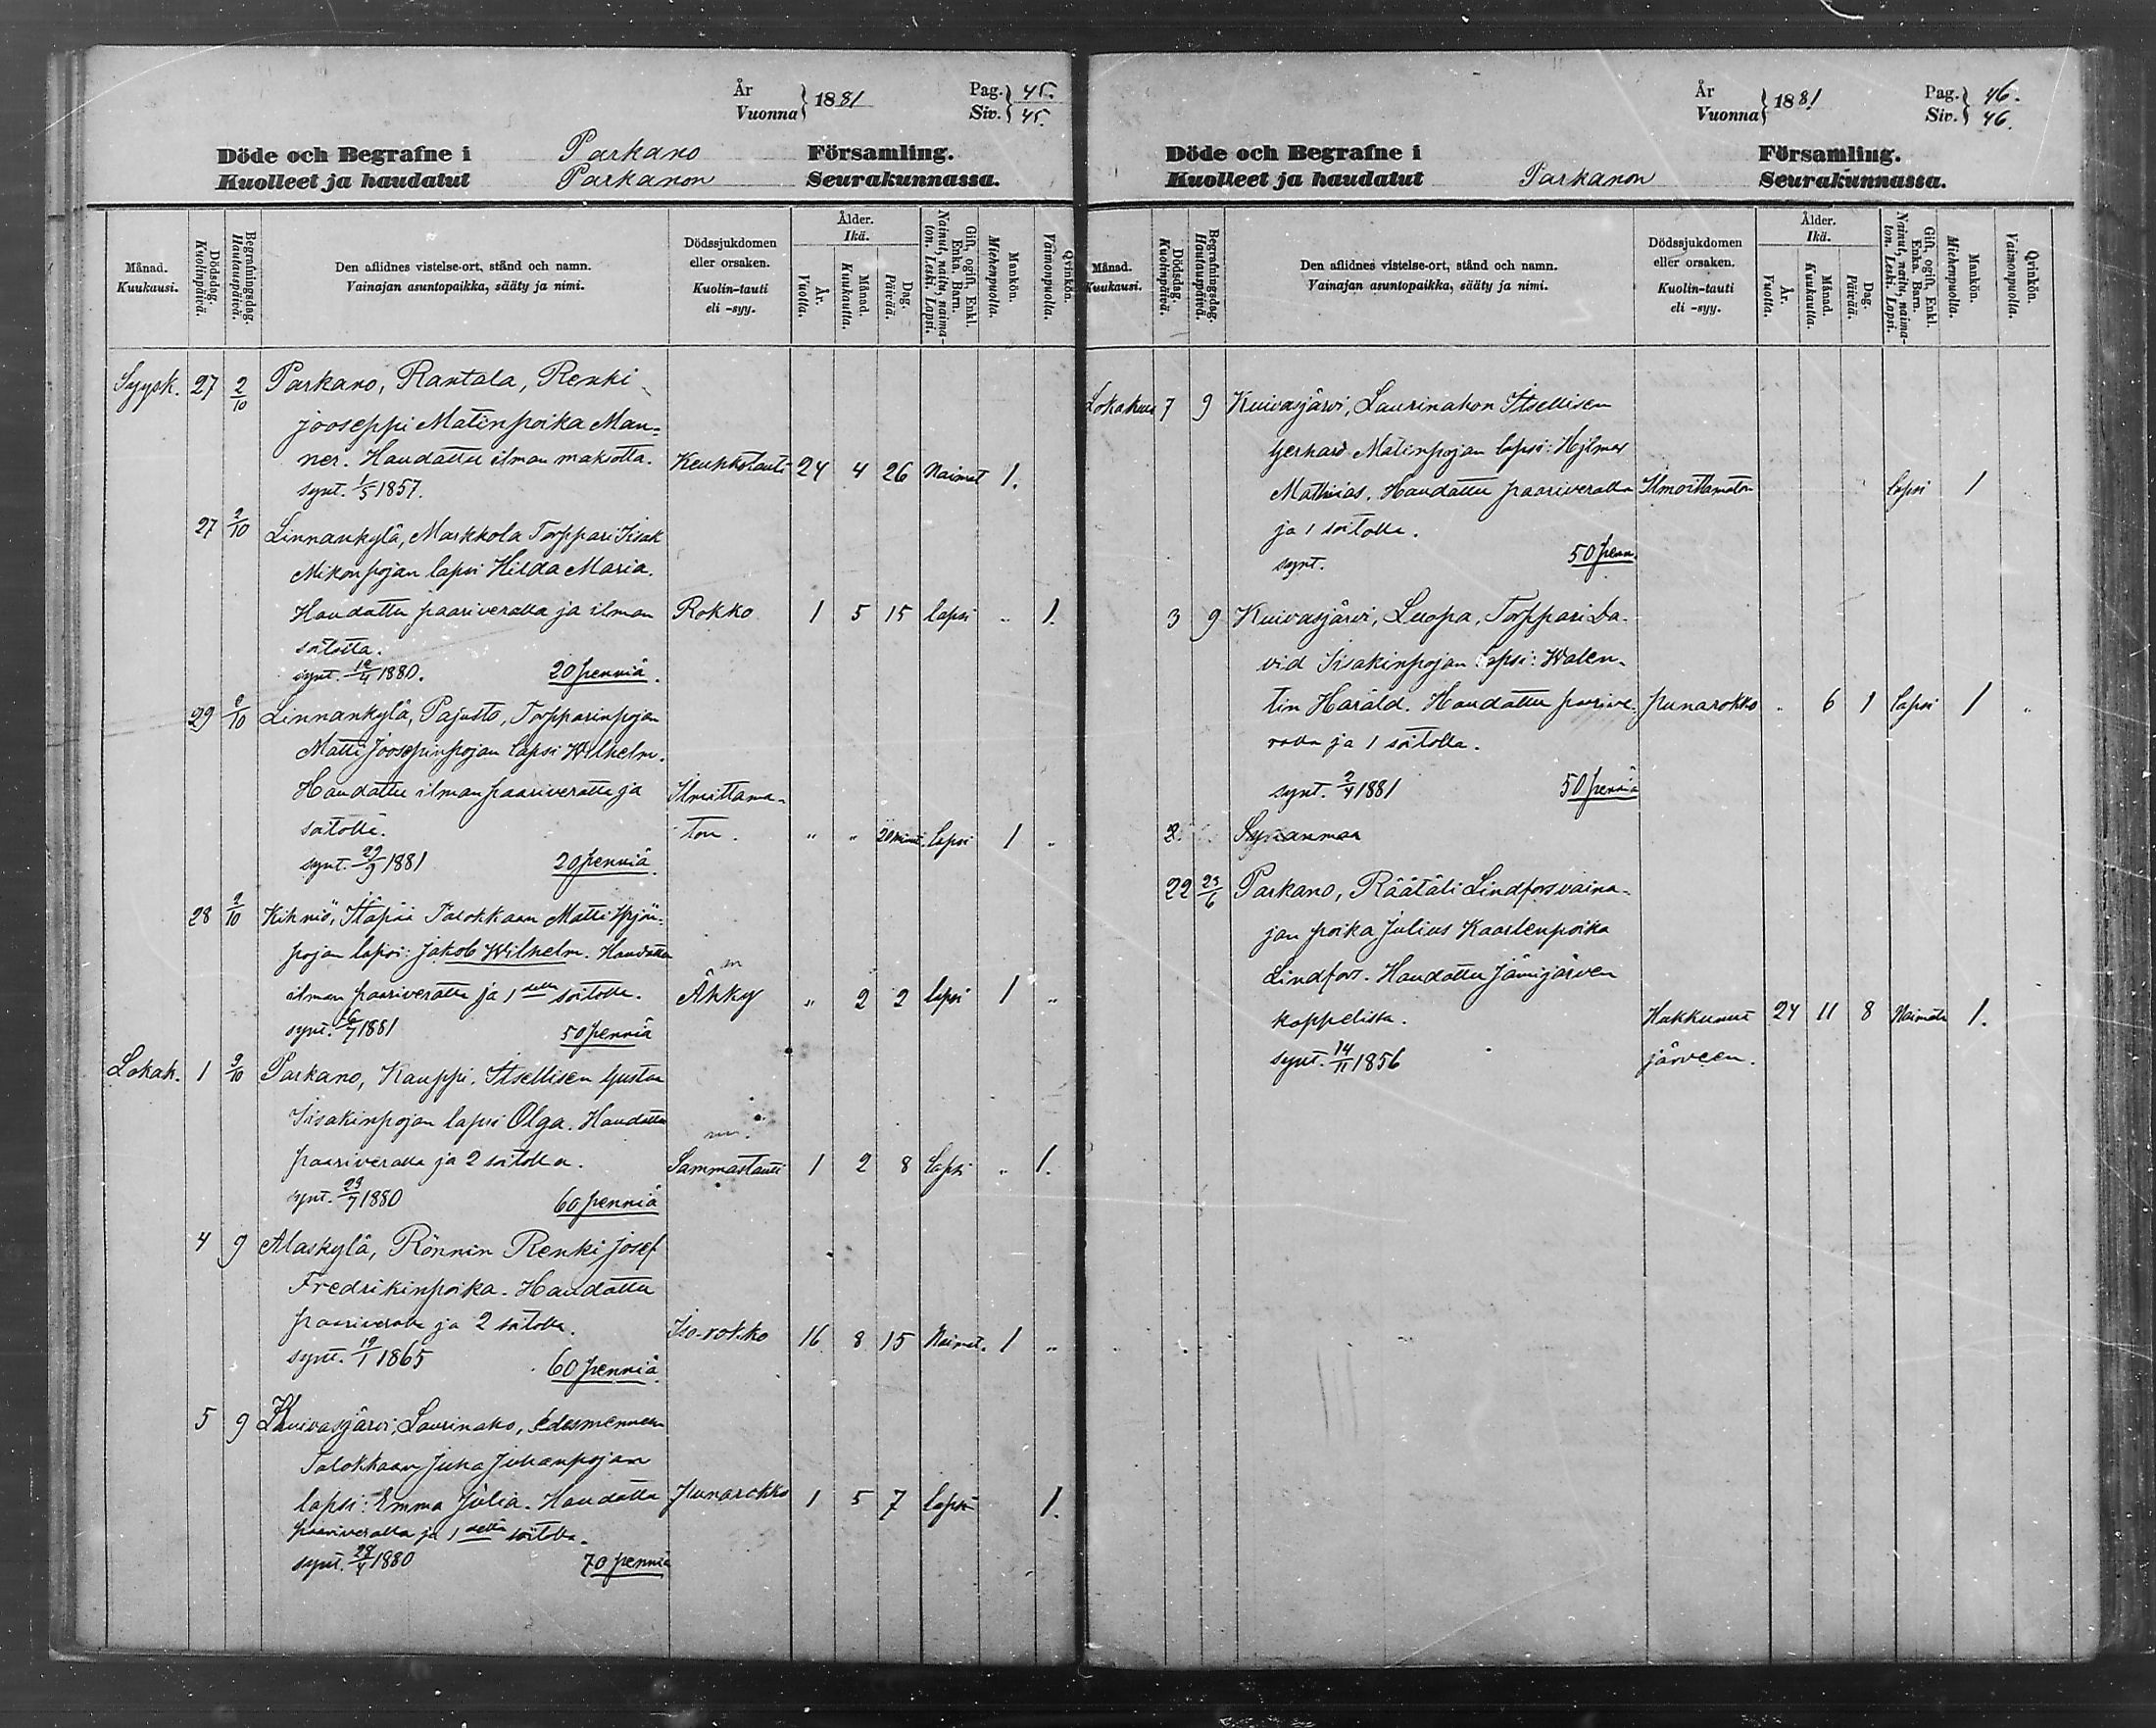 År
Vuonna } 1881
Pag. } 45.
Siv. } 45.
Döde och Begrafne i Parkano Församling.
Kuolleet ja haudatut Parkanon Seurakunnassa.
Månad.
Kuukausi.
Dödsdag.
Kuolinpäivä.
Begrafningsdag.
Hautauspäivä.
Den aflidnes vistelse-ort, stånd och namn.
Vainajan asuntopaikka, sääty ja nimi.
Dödssjukdomen
eller orsaken.
Kuolin-tauti
eli -syy.
Ålder.
Ikä.
År.
Vuotta.
Månad.
Kuukautta.
Dag.
Päivää.
Gift, ogift, Enkl.
Enka. Barn.
Nainut, naitu, naima-
ton. Leski. Lapsi.
Mankön.
Miehenpuolia.
Qvinkön.
Vaimonpuolia.
Syysk. 27 2/10 Parkano, Rantala, Renki
Jooseppi Matinpoika Man=
ner. Haudattu ilman maksotta. Keuhkotauti 24 4 26 Naimat 1.
synt. 1/5 1857.
27 2/10 Linnankylä, Markkola Torppari Iisak
Mikonpojan lapsi Hilda Maria.
Haudattu paariveralla ja ilman Rokko 1 5 15 lapsi " 1.
soitotta.
synt. 12/4 1880. 20 penniä.
29 2/10 Linnankylä, Pajusto, Torpparinpojan
Matti Joosepinpojan lapsi Wilhelm.
Haudattu ilman paariveratta ja Ilmoittama-
soitotta. ton. " " 20 minut. lapsi 1 "
synt. 29/9 1881 20 penniä.
28 2/10 Kihniö, Talokkaan Matti Yrjön-
pojan lapsi: Jakob Wilhelm. Haudattu
ilman paariveratta ja 1 della soitolla. Ähky " 2 2 lapsi 1 "
synt. 26/7 1881 50 penniä
Lokak. 1 9/10 Parkano, Kauppi. Itsellisen Gustaa
Iisakinpojan lapsi Olga. Haudattu
paariveralla ja 2 soitolla. Sammastauti 1 2 8 lapsi " 1.
synt. 23/7 1880 60 penniä
4 9 Alaskylä, Rönnin Renki Josef
Fredrikinpoika. Haudattu
paariveralla ja 2 soitolla. Iso-rokko 16 8 15 Naimat. 1 "
synt. 19/1 1865 60 penniä.
5 9 Kuivasjärvi, Laurinaho, edesmenneen
Talokkaan Juha Juhanpojan
lapsi: Emma Julia. Haudattu punarokko 1 5 7 lapsi 1.
paariveralla ja 1 della soitolla.
synt. 28/4 1880 70 penniä
År
Vuonna } 1881
Pag. } 46.
Siv. } 46.
Döde och Begrafne i Församling.
Kuolleet ja haudatut Parkanon Seurakunnassa.
Månad.
Kuukausi.
Dödsdag.
Kuolinpäivä.
Begrafningsdag.
Hautauspäivä.
Den aflidnes vistelse-ort, stånd och namn.
Vainajan asuntopaikka, sääty ja nimi.
Dödssjukdomen
eller orsaken.
Kuolin-tauti
eli -syy.
Ålder.
Ikä.
År.
Vuotta.
Månad.
Kuukautta.
Dag.
Päivää.
Gift, ogift, Enkl.
Enka. Barn.
Nainut, naitu, naima-
ton. Leski. Lapsi.
Mankön.
Miehenpuolia.
Qvinkön.
Vaimonpuolia.
Lokakuu 7 9 Kuivasjärvi, Laurinahon Itsellisen
Gerhard Matinpojan lapsi: Hjlmar
Mathias. Haudattu paariveralla Ilmoittamaton lapsi 1
ja 1 soitolla.
synt. 50 penn.
3 9 Kuivasjärvi, Luopa, Torppari Da-
vid Iisakinpojan lapsi: Walen-
tin Harald. Haudattu paarive- punarokko " 6 1 lapsi 1 "
ralla ja 1 soitolla.
synt. 2/4 1881 50 penniä
2
22 23/6 Parkano, Räätäli Lindforsvaina-
jan poika Julius Kaarlenpoika
Lindfors. Haudattu Jämijärven
kappelissa. Hukkunut 24 11 8 Naimat. 1.
synt. 14/11 1856 järveen.